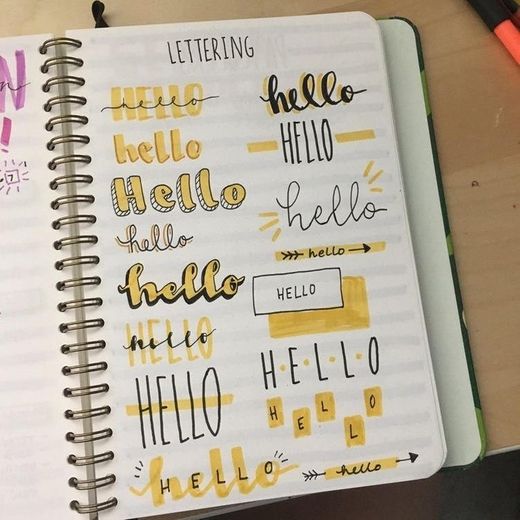 LETTERING
HELLO
hello
hello
Hello
hello
hello
HELLO
hello
HELLO
hello
HELLO
hello
HELLO
hello
hello
HELLO
H·E·L·L·O
H E L L O
hello